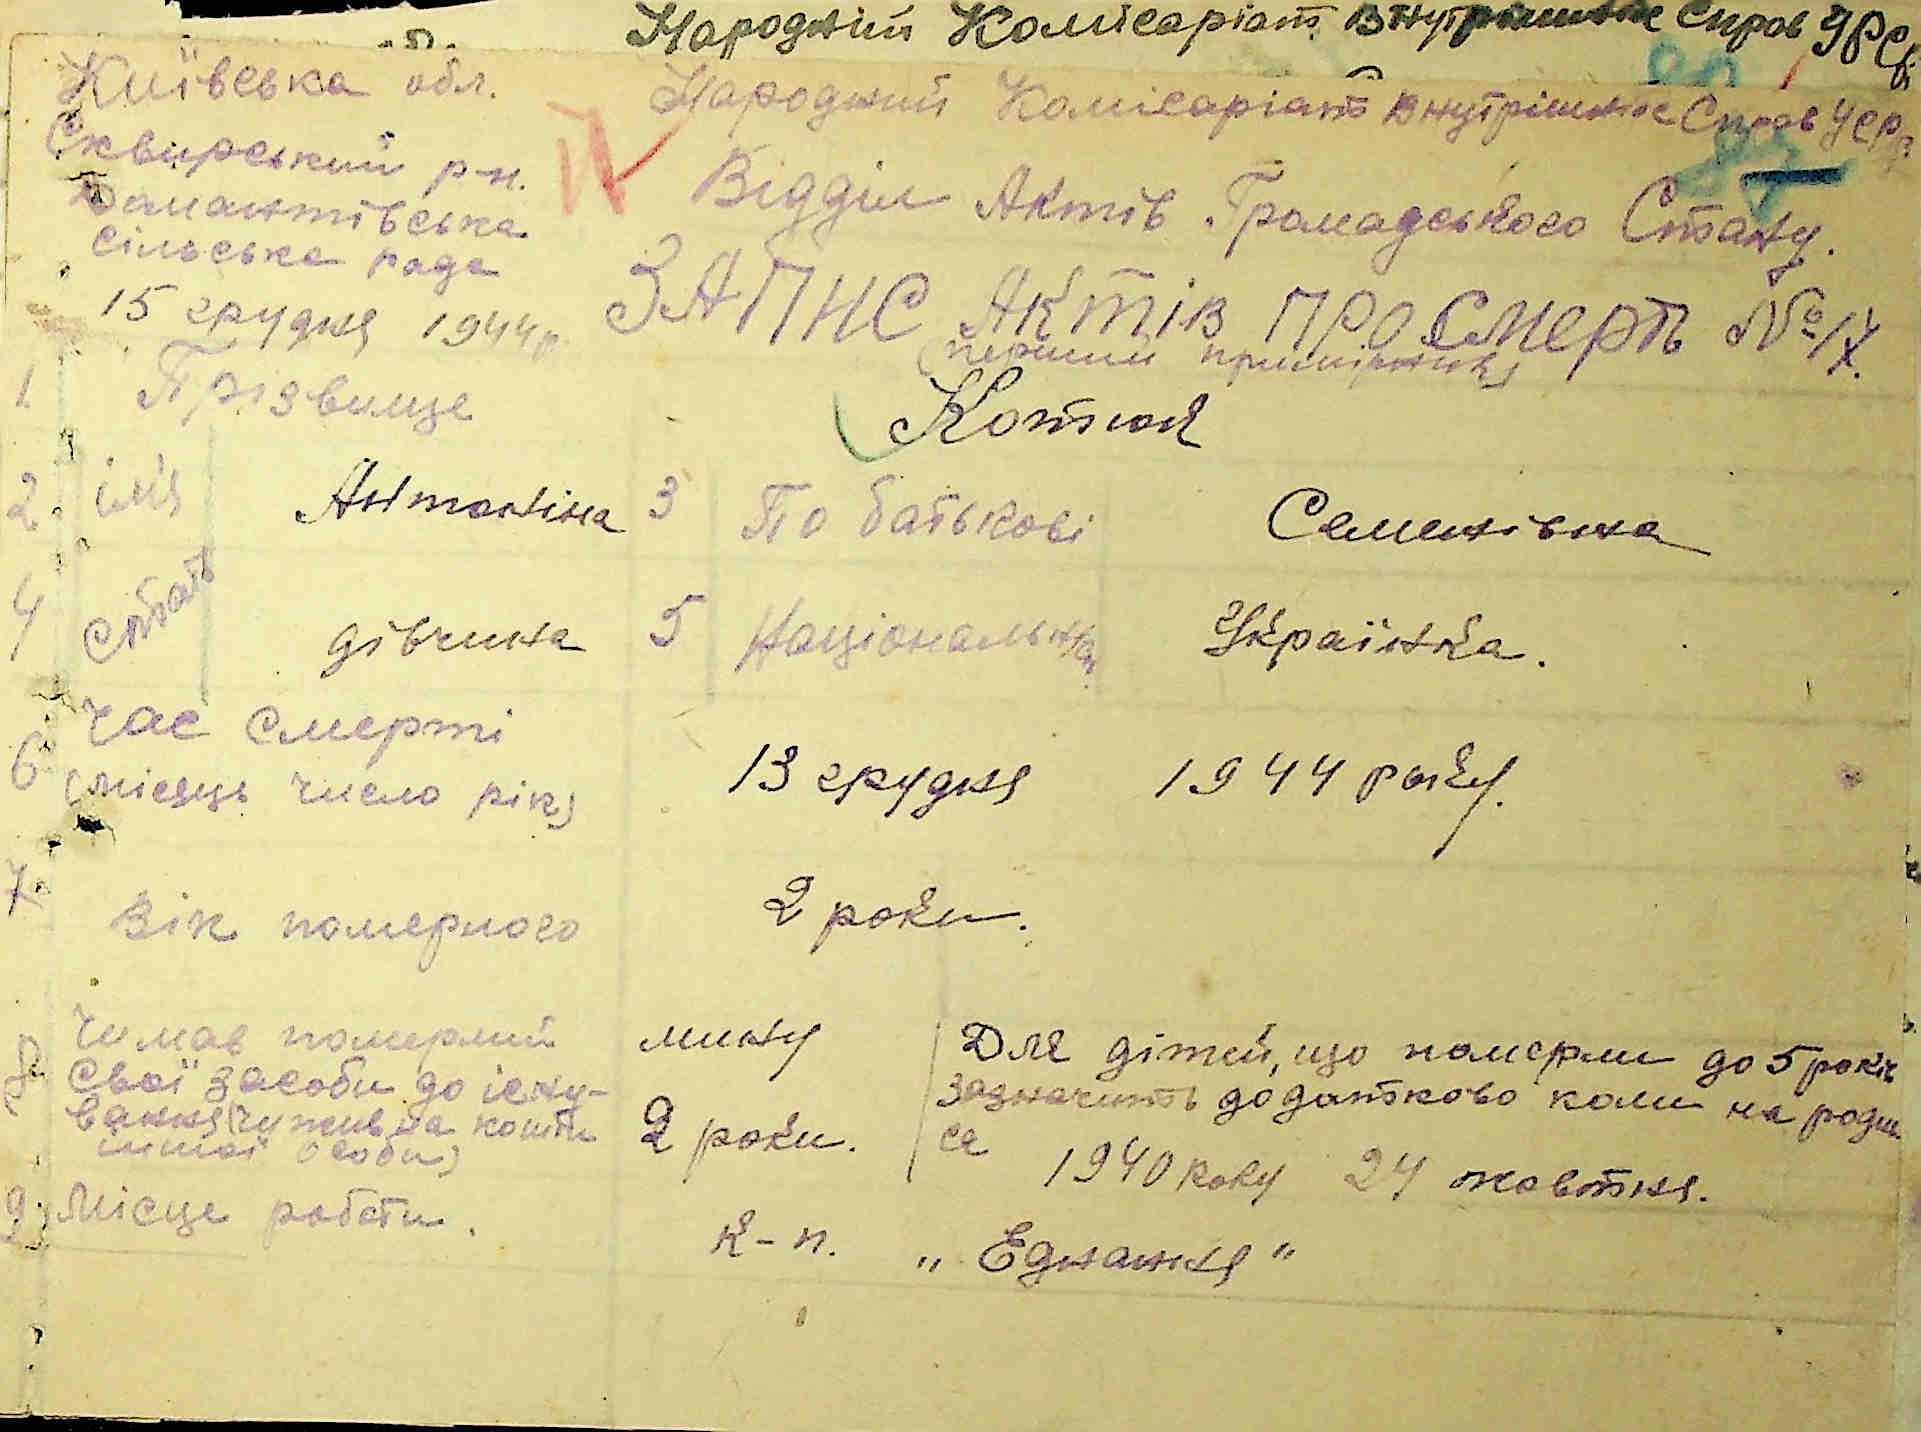 Народній Комісаріат Внутрішніх Справ УРСР
Київська обл.
Народній Комісаріат Внутрішніх Справ УСРР
Сквирський р-н.
Відділ Актів Громадського Стану.
Домантівська
сільська рада
15 грудня 1944 р.
ЗАПИС Актів про смерть № 17.
(перший примірник)
1. Прізвище
2. ім'я Антоніна 3 По батькові Семенівна
4 стать дівчина 5 Національн. Українка.
6 Час смерті
(місяць число рік) 13 грудня 1944 року.
7. Вік померлого 2 роки.
8 Чи мав померлий
свої засоби до існу-
вання (чи жив на кошти
іншої особи)
2 роки.
Для дітей, що померли до 5 років
зазначить додатково коли народив
ся
1940 року 24 жовтня.
9. Місце роботи. к-п. „Еднання"